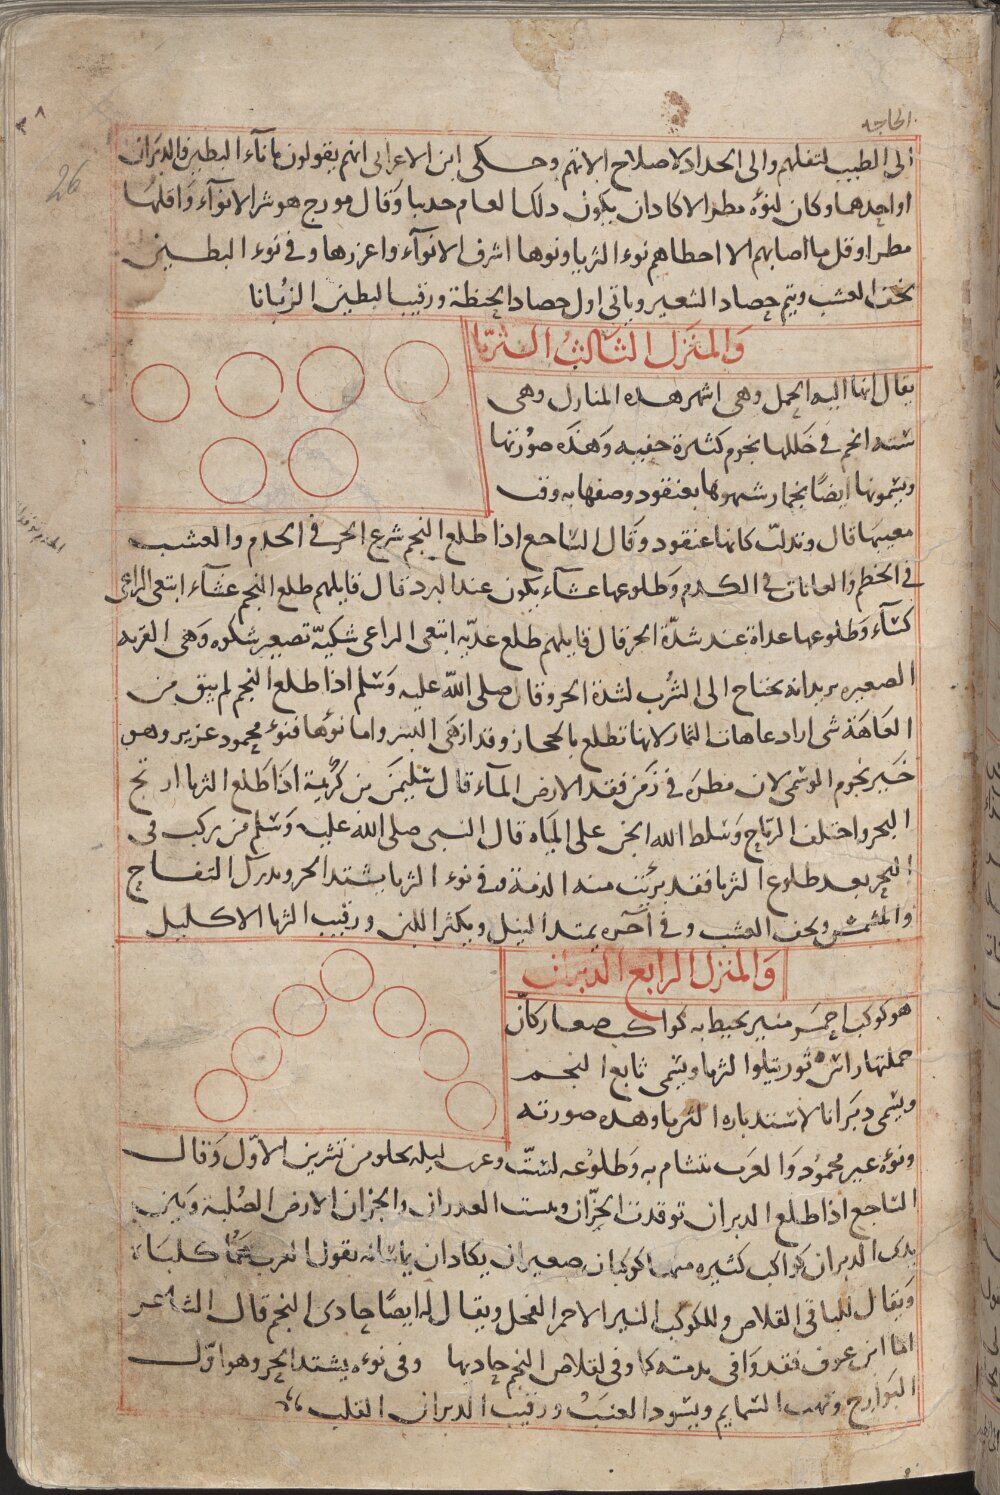 الحاجه
26
الى الطبيب لتفلهم والى الحداد لاصلاح الاتهم وحكى ابن الاعرابى انهم يقولون ما ناء البطين والدبران
او احدهما وكان لنوه مطر الا كاد ان يكون ذلك العام جدبا وقال مورج هو شر الانوآء واقلها
مطرا وقل ما اصابهم الا اخطاهم نوء الثريا ونوها اشرف الانوآء واعزرها وفى نوء البطين
يجف العشب ويتم حصاد الشعير وياتى اول حصاد الحنطة ورقيب البطين الزبانا
والمنزل الثالث الثريا
يقال انها الية الحمل وهى اشهر هذه المنازل وهى
ستة انجم فى خللها نجوم كثيرة خفيه وهذه صورتها
ويسمونها ايضا نجما وشبهوها بعنقود وصفها به وقت
مغيبها قال وتدلت كانها عنقود وقال الساجع اذا طلع النجم شرع الحر فى الحدم والعشب
فى الخطم والعانات فى الكدم وطلوعها عشآء يكون عند البرد قال قايلهم طلع النجم عشآء ابتغى الراعى
كسآء وطلوعها غداة عند شدة الحر قال قايلهم طلع غديه ابتغى الراعى شكيه تصغير شكوه وهى القربه
الصغيره يريد انه يحتاج الى الشرب لشدة الحر وقال صلى الله عليه وسلم اذا طلع النجم لم يبق من
العاهة شى اراد عاهات الثمار لانها تطلع بالحجاز وقد ازهى البسر واما نوها فنوء محمود غزير وهو
خير نجوم الوسمى لان مطره فى زمن فقد الارض المآء قال
البحر واختلف الرياح وسلط الله الجن على المياه قال النبى صلى الله عليه وسلم من يركب فى
البحر بعد طلوع الثريا فقد برئت منه الذمة وفى نوء الثريا يشتد الحر ويدرك التفاح
والمشمش ويجف العشب وفى آخره يمتد النيل ويكثر اللبن ورقيب الثريا الاكليل
والمنزل الرابع الدبران
هو كوكب احمر منير يحيط به كواكب صغار كان
جملتها راس ثور يتلوا الثريا ويسمى تابع النجم
ويسمى دبرانا لاستدباره الثريا وهذه صورته
ونوه غير محمود والعرب تتشام به وطلوعه لست وعرب ليله يخلو من تشرين الاول وقال
الساجع اذا طلع الدبران توقدت الحزان ويبست الغدران والحزان الارض الصلبة وبين
يدى الدبران كواكب كثيره منها كوكبان صغيران يكادان يماسانه يقول العرب هما كلباه
ويقال للباقى القلاص وللكوكب النير الاحمر الفحل ويقال له ايضا حادى النجم قال الشاعر
اما ابن عوف فقد وافى بذمته كما وفى لقلاص النجم حاديها وفى نوءه يشتد الحر وهو اول
البوارح وتهب السمايم ويسود العنب ورقيب الدبران القلب